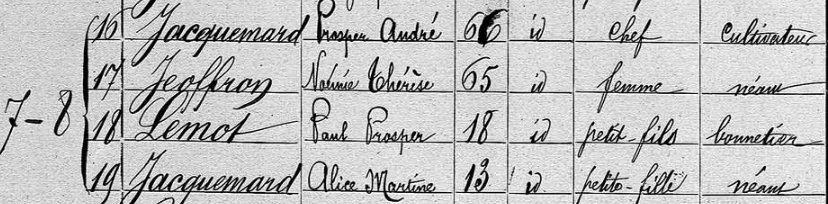 16 Jacquemard Prosper André 66 id chef cultivateur
17 Jeoffron Noémie Thérèse 65 id femme néant
7-8 18 Lemot Paul Prosper 18 id petit-fils bonnetier
19 Jacquemard Alice Martine 13 id petite-fille néant